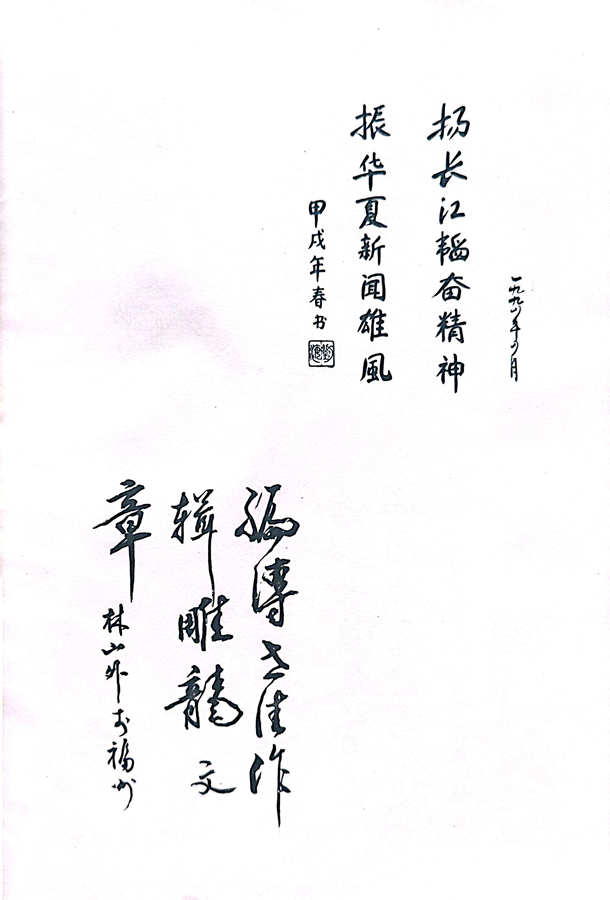 一九九四年四月
扬长江韬奋精神
振华夏新闻雄風
甲戌年春书
編傳世佳作
辑雕龍文
章
林山外于福州